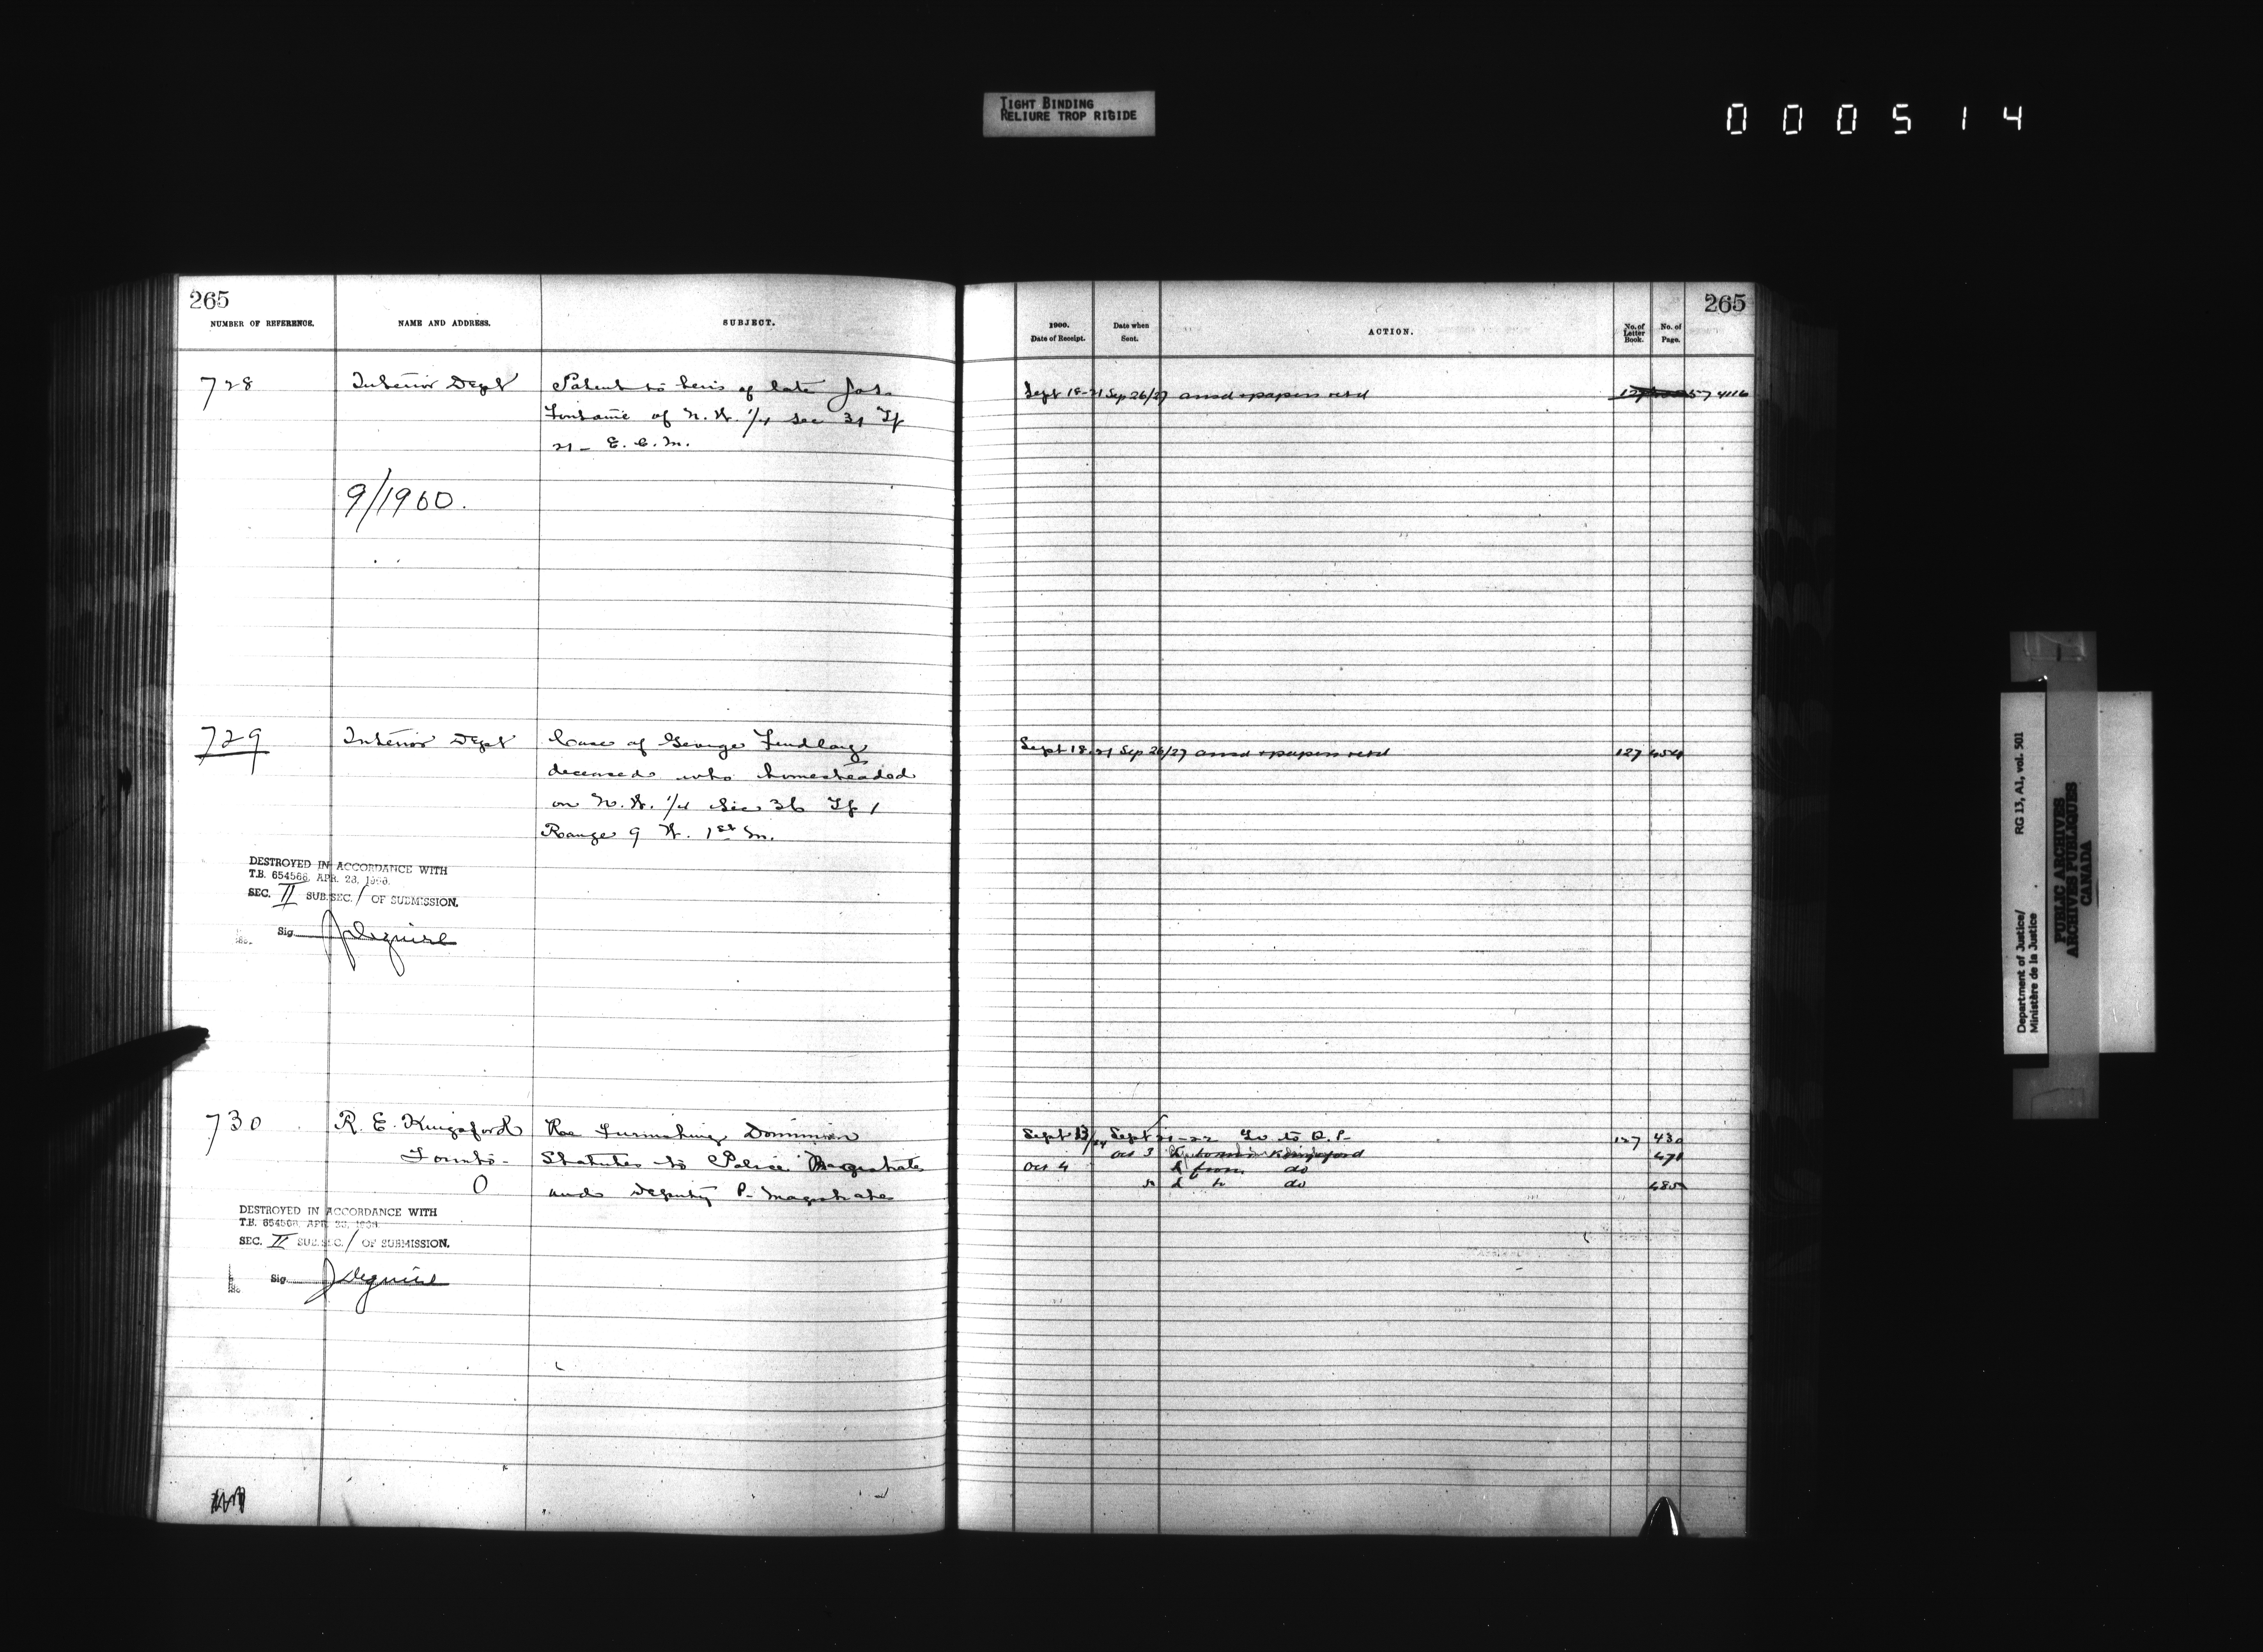 TIGHT BINDING
RELIURE TROP RIGIDE
000514
265
NUMBER OF REFERENCE.
NAME AND ADDRESS.
SUBJECT.
728
Interior Dept
Patent to heirs of late Jos.
Fontaine of N.W. 1/4 Sec 31 Tp
21 - E. C. M.
9/1900.
729
Interior Dept
Case of George Findlay
deceased who homesteaded
on N.W. 1/4 Sec 36 Tp 1
Range 9 W. 1st M.
DESTROYED IN ACCORDANCE WITH
T.B. 654566, APR. 28, 1966.
SEC. II SUB.SEC. / OF SUBMISSION.
Sig. J Deguire
730
R. E. Kingsford
Toronto -
0
Statutes to Police Magistrate
and Deputy P. Magistrate
Furnishing Dominion
DESTROYED IN ACCORDANCE WITH
T.B. 654566, APR.
SEC. II SUB.SEC. / OF SUBMISSION.
Sig. J Deguire
265
1900.
Date of Receipt.
Date when
Sent.
ACTION.
No. of
Letter
Book.
No. of
Page.
Sept 18-21 Sep 26/27 ansd & papers retd
Sept 18-21 Sep 26/27 ansd & papers retd 127 454
Sept 21-22 to Q.P. 127 430
Oct 3 Kingsford 471
Oct 4 from do
do 485
Department of Justice/
Ministère de la Justice
RG 13, A1, vol. 501
PUBLIC ARCHIVES
ARCHIVES PUBLIQUES
CANADA